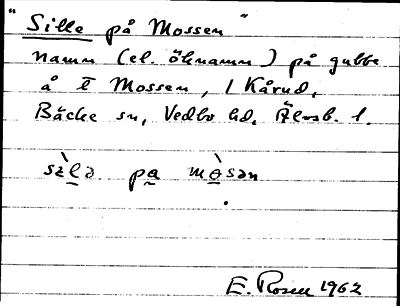 "Sille på Mossen"
namn (el. öknamn) på gubbe
å t Mossen, / Kårud,
Bäcke sn, Vedbo hd, Älvsb. l.
sìlə pa mòsən
E. Rosell 1962